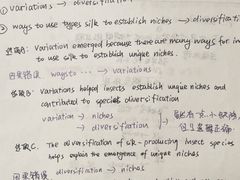 ① variations → diversification
② ways to use types silk to establish niches → diversificati
选项A: Variation emerged because there are many ways for in
to use silk to establish unique niches.
因果错误 ways to ... → variations
选项B: Variations helped insects establish unique niches and
contributed to species diversification
variation → niches
→ diversification
选项C. The diversification of silk-producing insect species
helps explain the emergence of unique niches
因果错误 diversification → niches